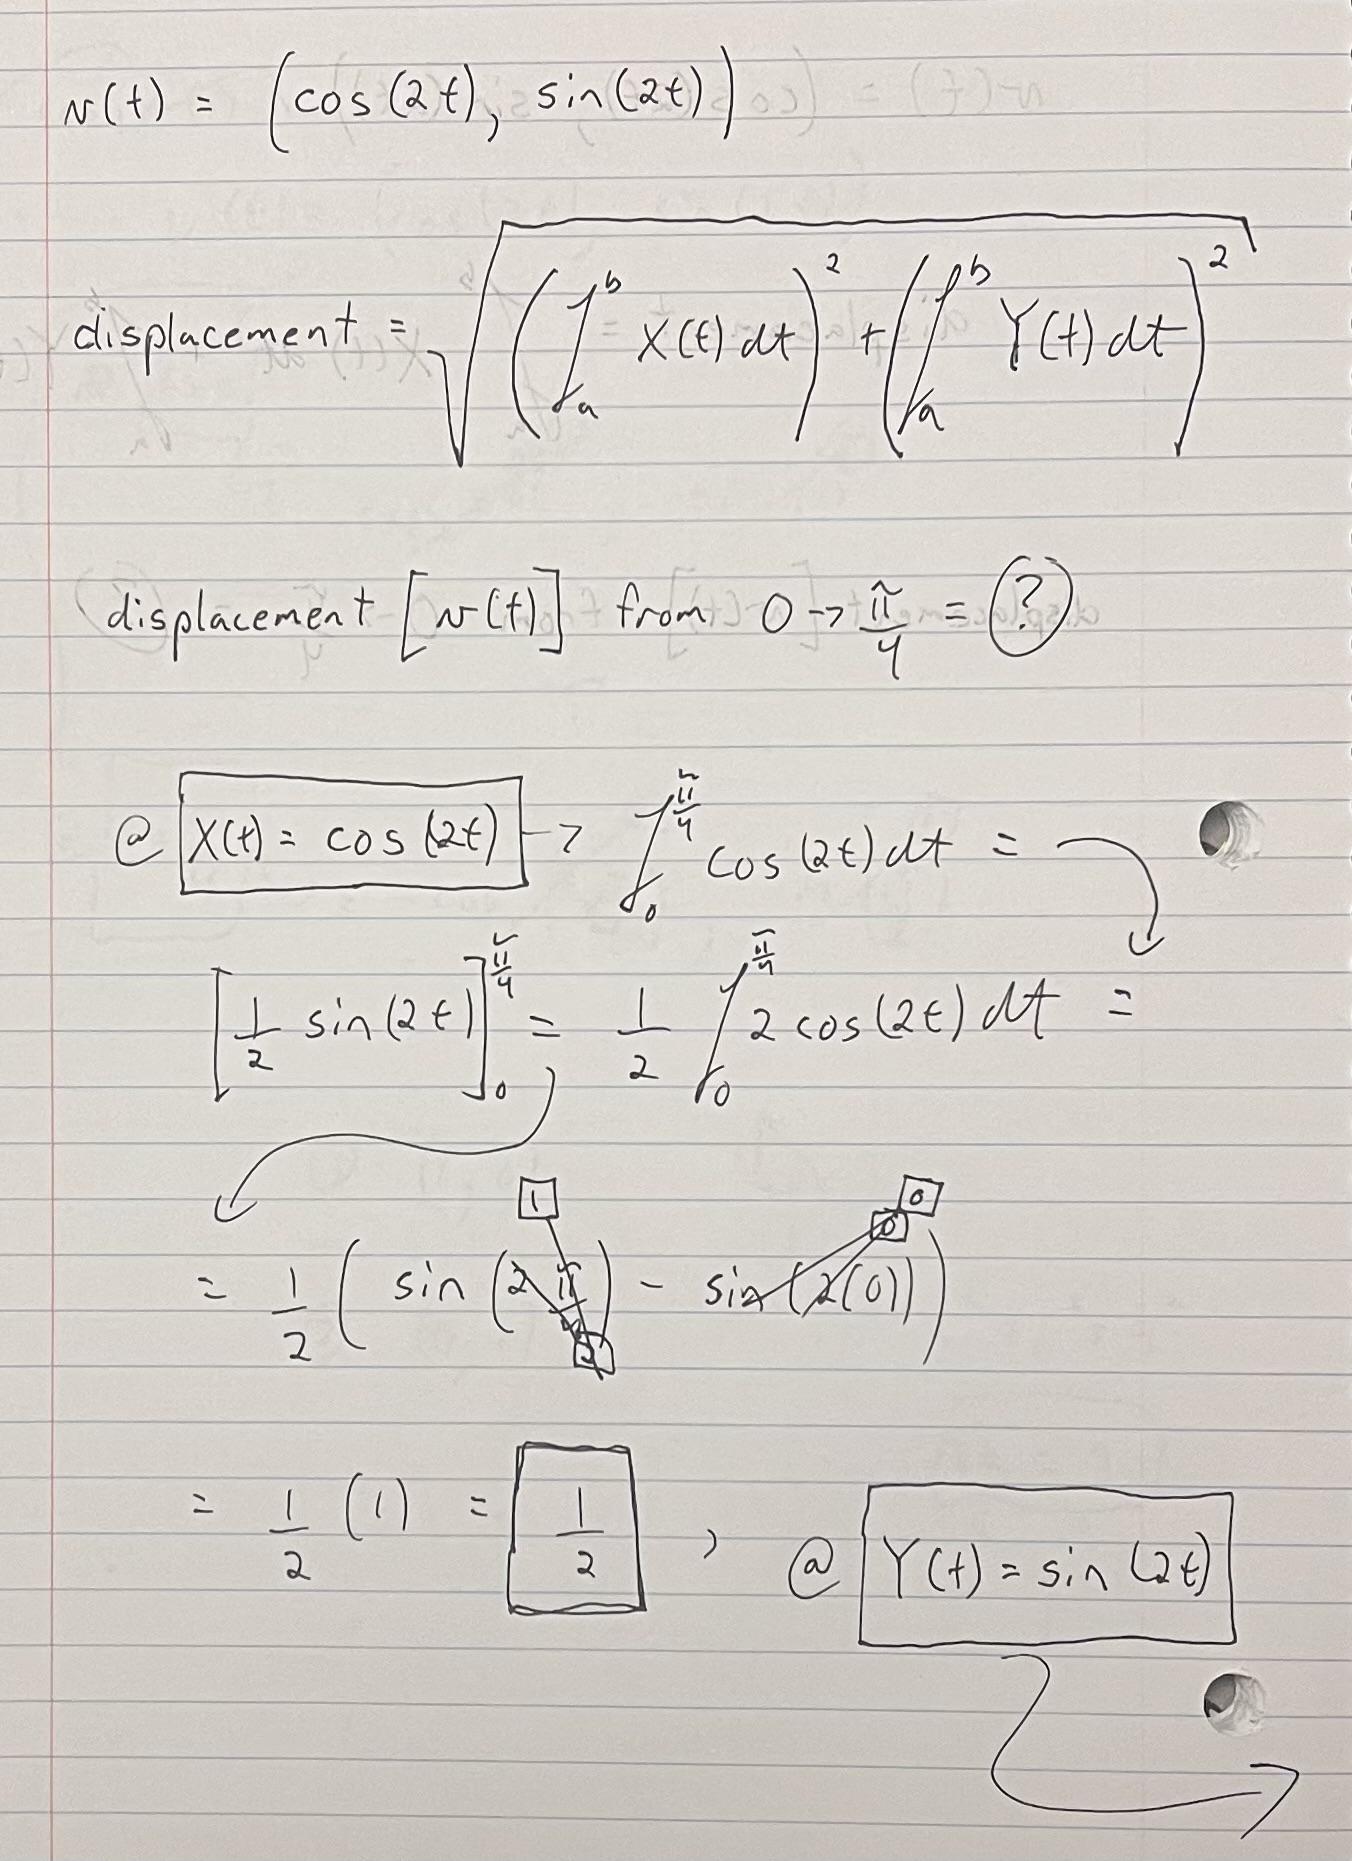 v(t) = (cos(2t), sin(2t))
displacement = √((∫_a^b X(t) dt)^2 + (∫_a^b Y(t) dt)^2)
displacement [v(t)] from 0 → π/4 = (?)
@ X(t) = cos(2t) → ∫_0^{π/4} cos(2t) dt =
[1/2 sin(2t)]_0^{π/4} = 1/2 ∫_0^{π/4} 2 cos(2t) dt =
1 0
0
= 1/2 (sin(2 π/4) - sin(2(0)))
2
= 1/2 (1) = 1/2 , @ Y(t) = sin(2t)